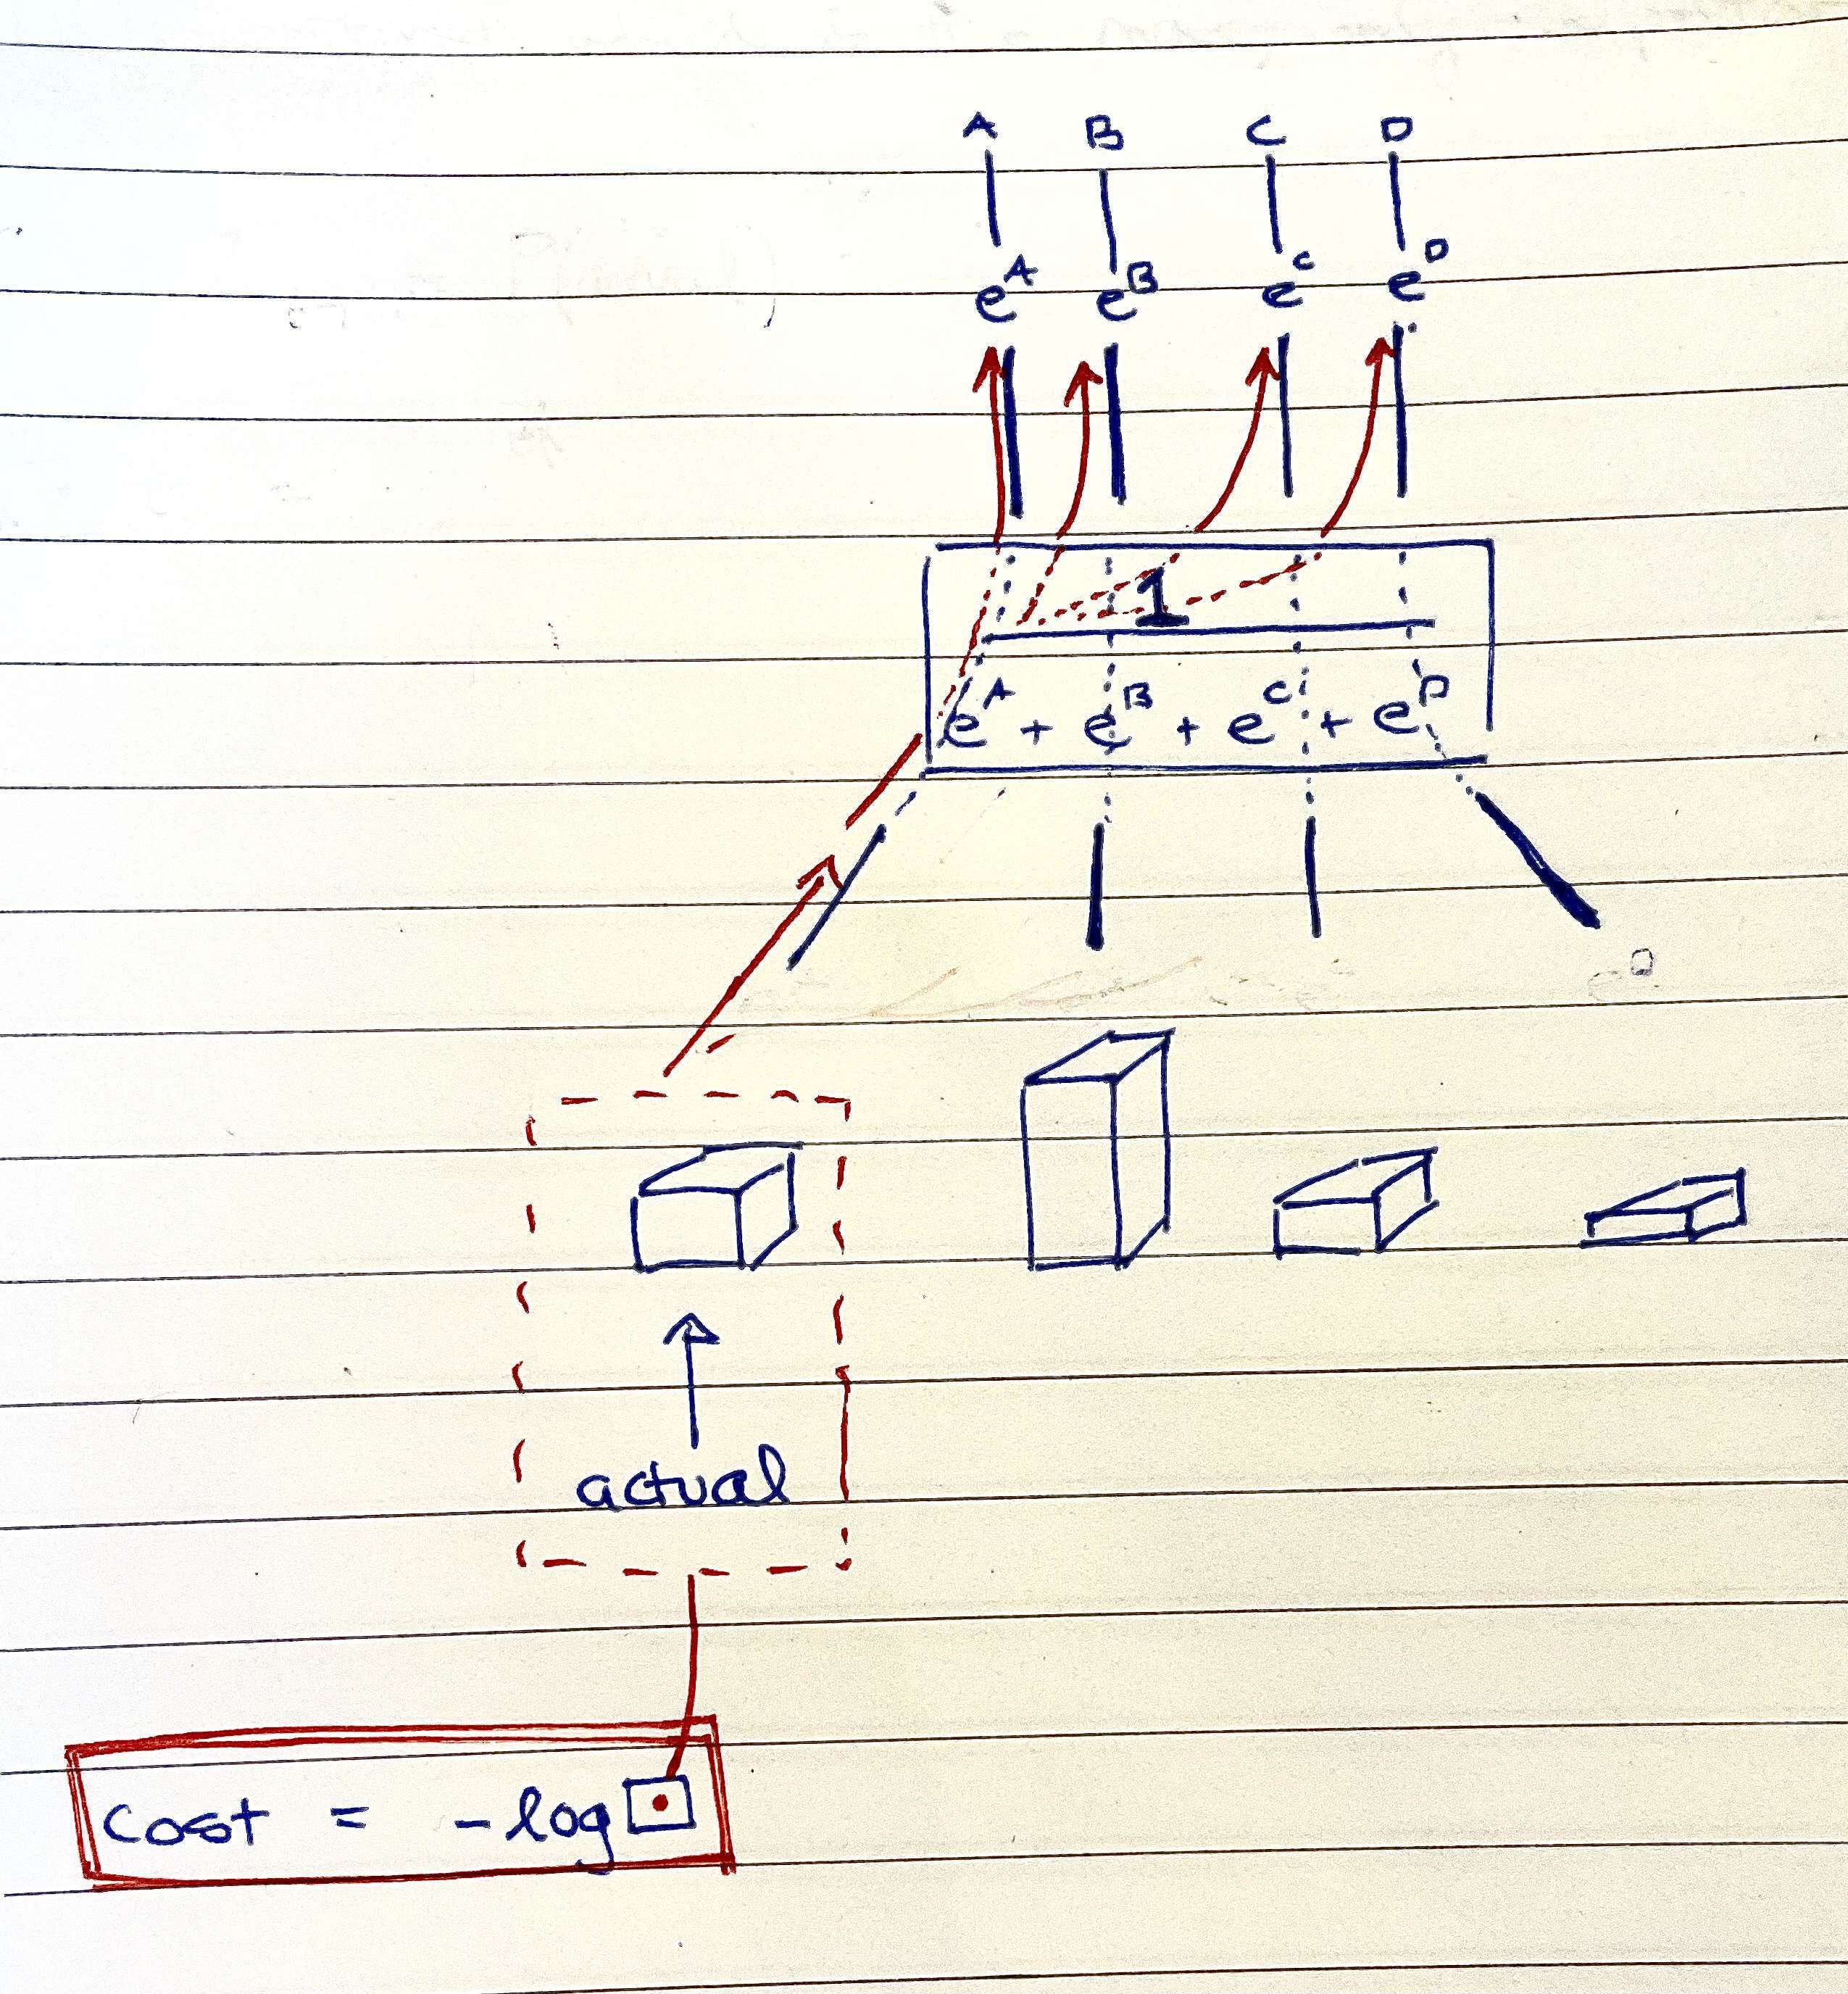 A B C D
e^A e^B e^c e^D
1
e^A + e^B + e^C + e^D
actual
cost = -log